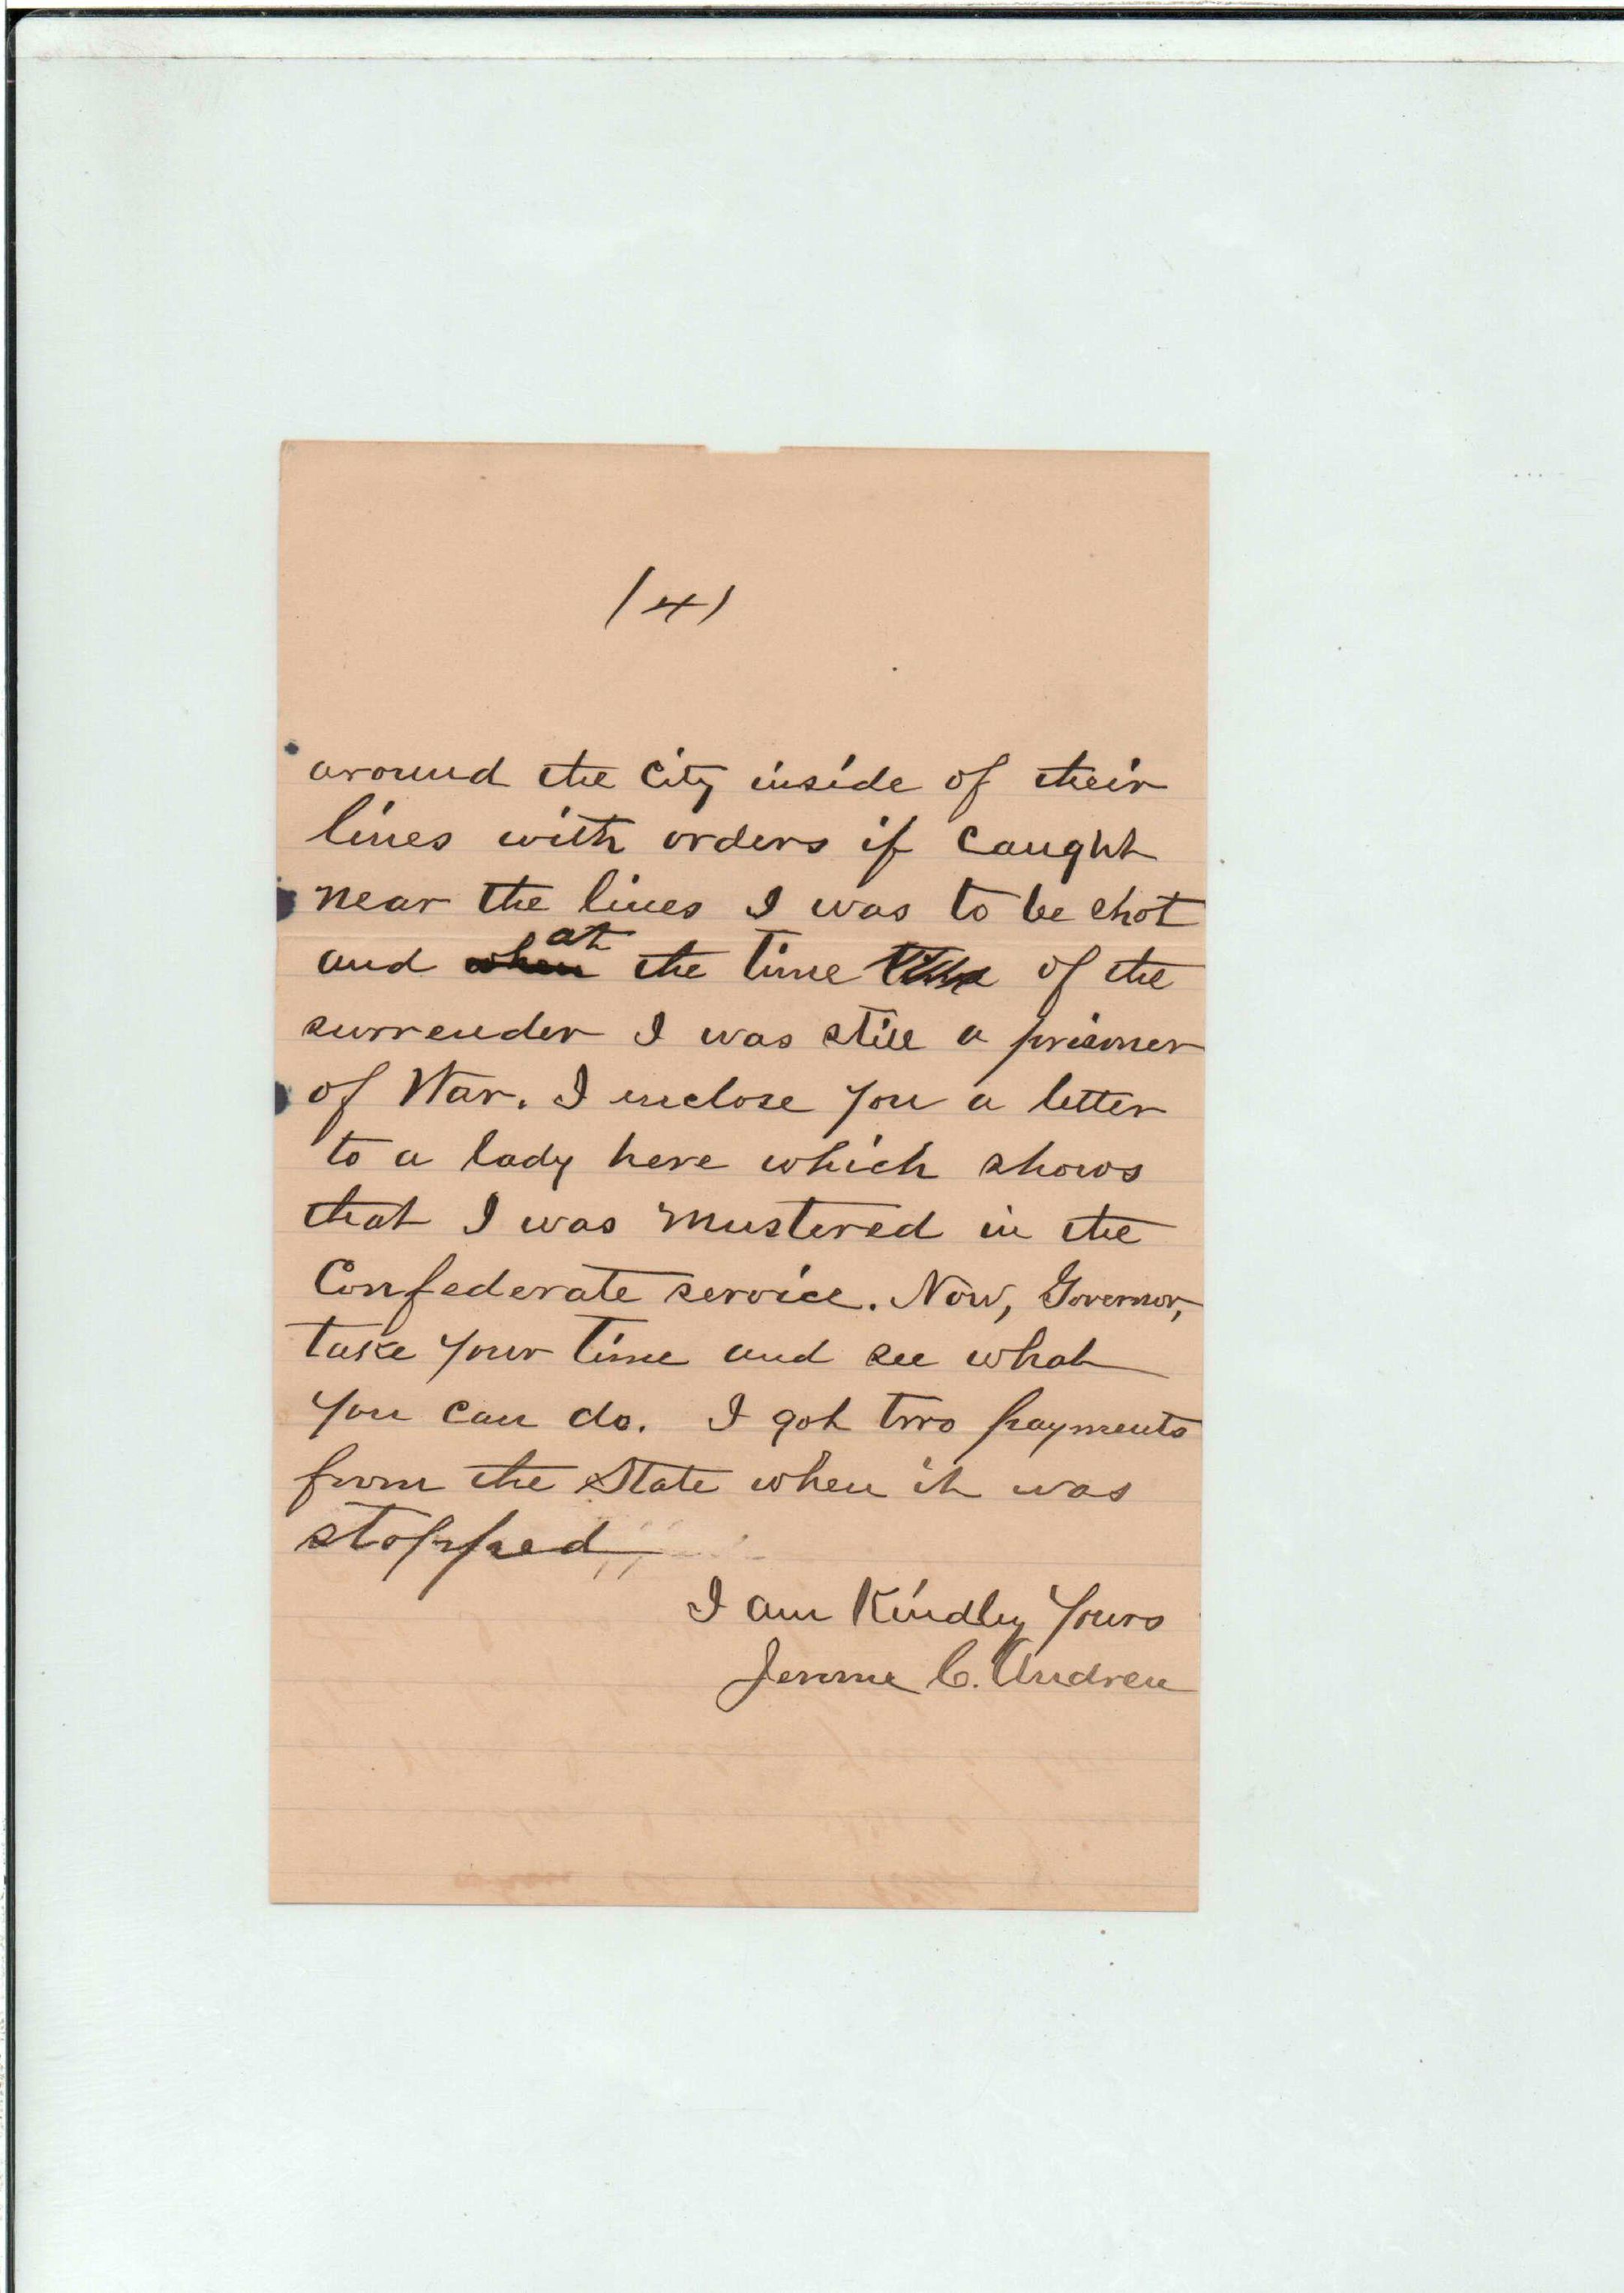 (4)
around the City inside of their
lines with orders if caught
near the lines I was to be shot
and when at the time time of the
surrender I was still a prisoner
of War. I enclose you a letter
to a lady here which shows
that I was mustered in the
Confederate service. Now, Governor,
take your time and see what
you can do. I got two payments
from the State when it was
stopped
I am Kindly Yours
Jerome C. Andreu